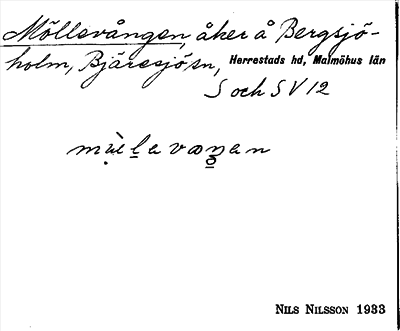 Möllevången, åker å Bergsjö-
holm, Bjäresjö sn, Herrestads hd, Malmöhus län
S och SV 12
NILS NILSSON 1933